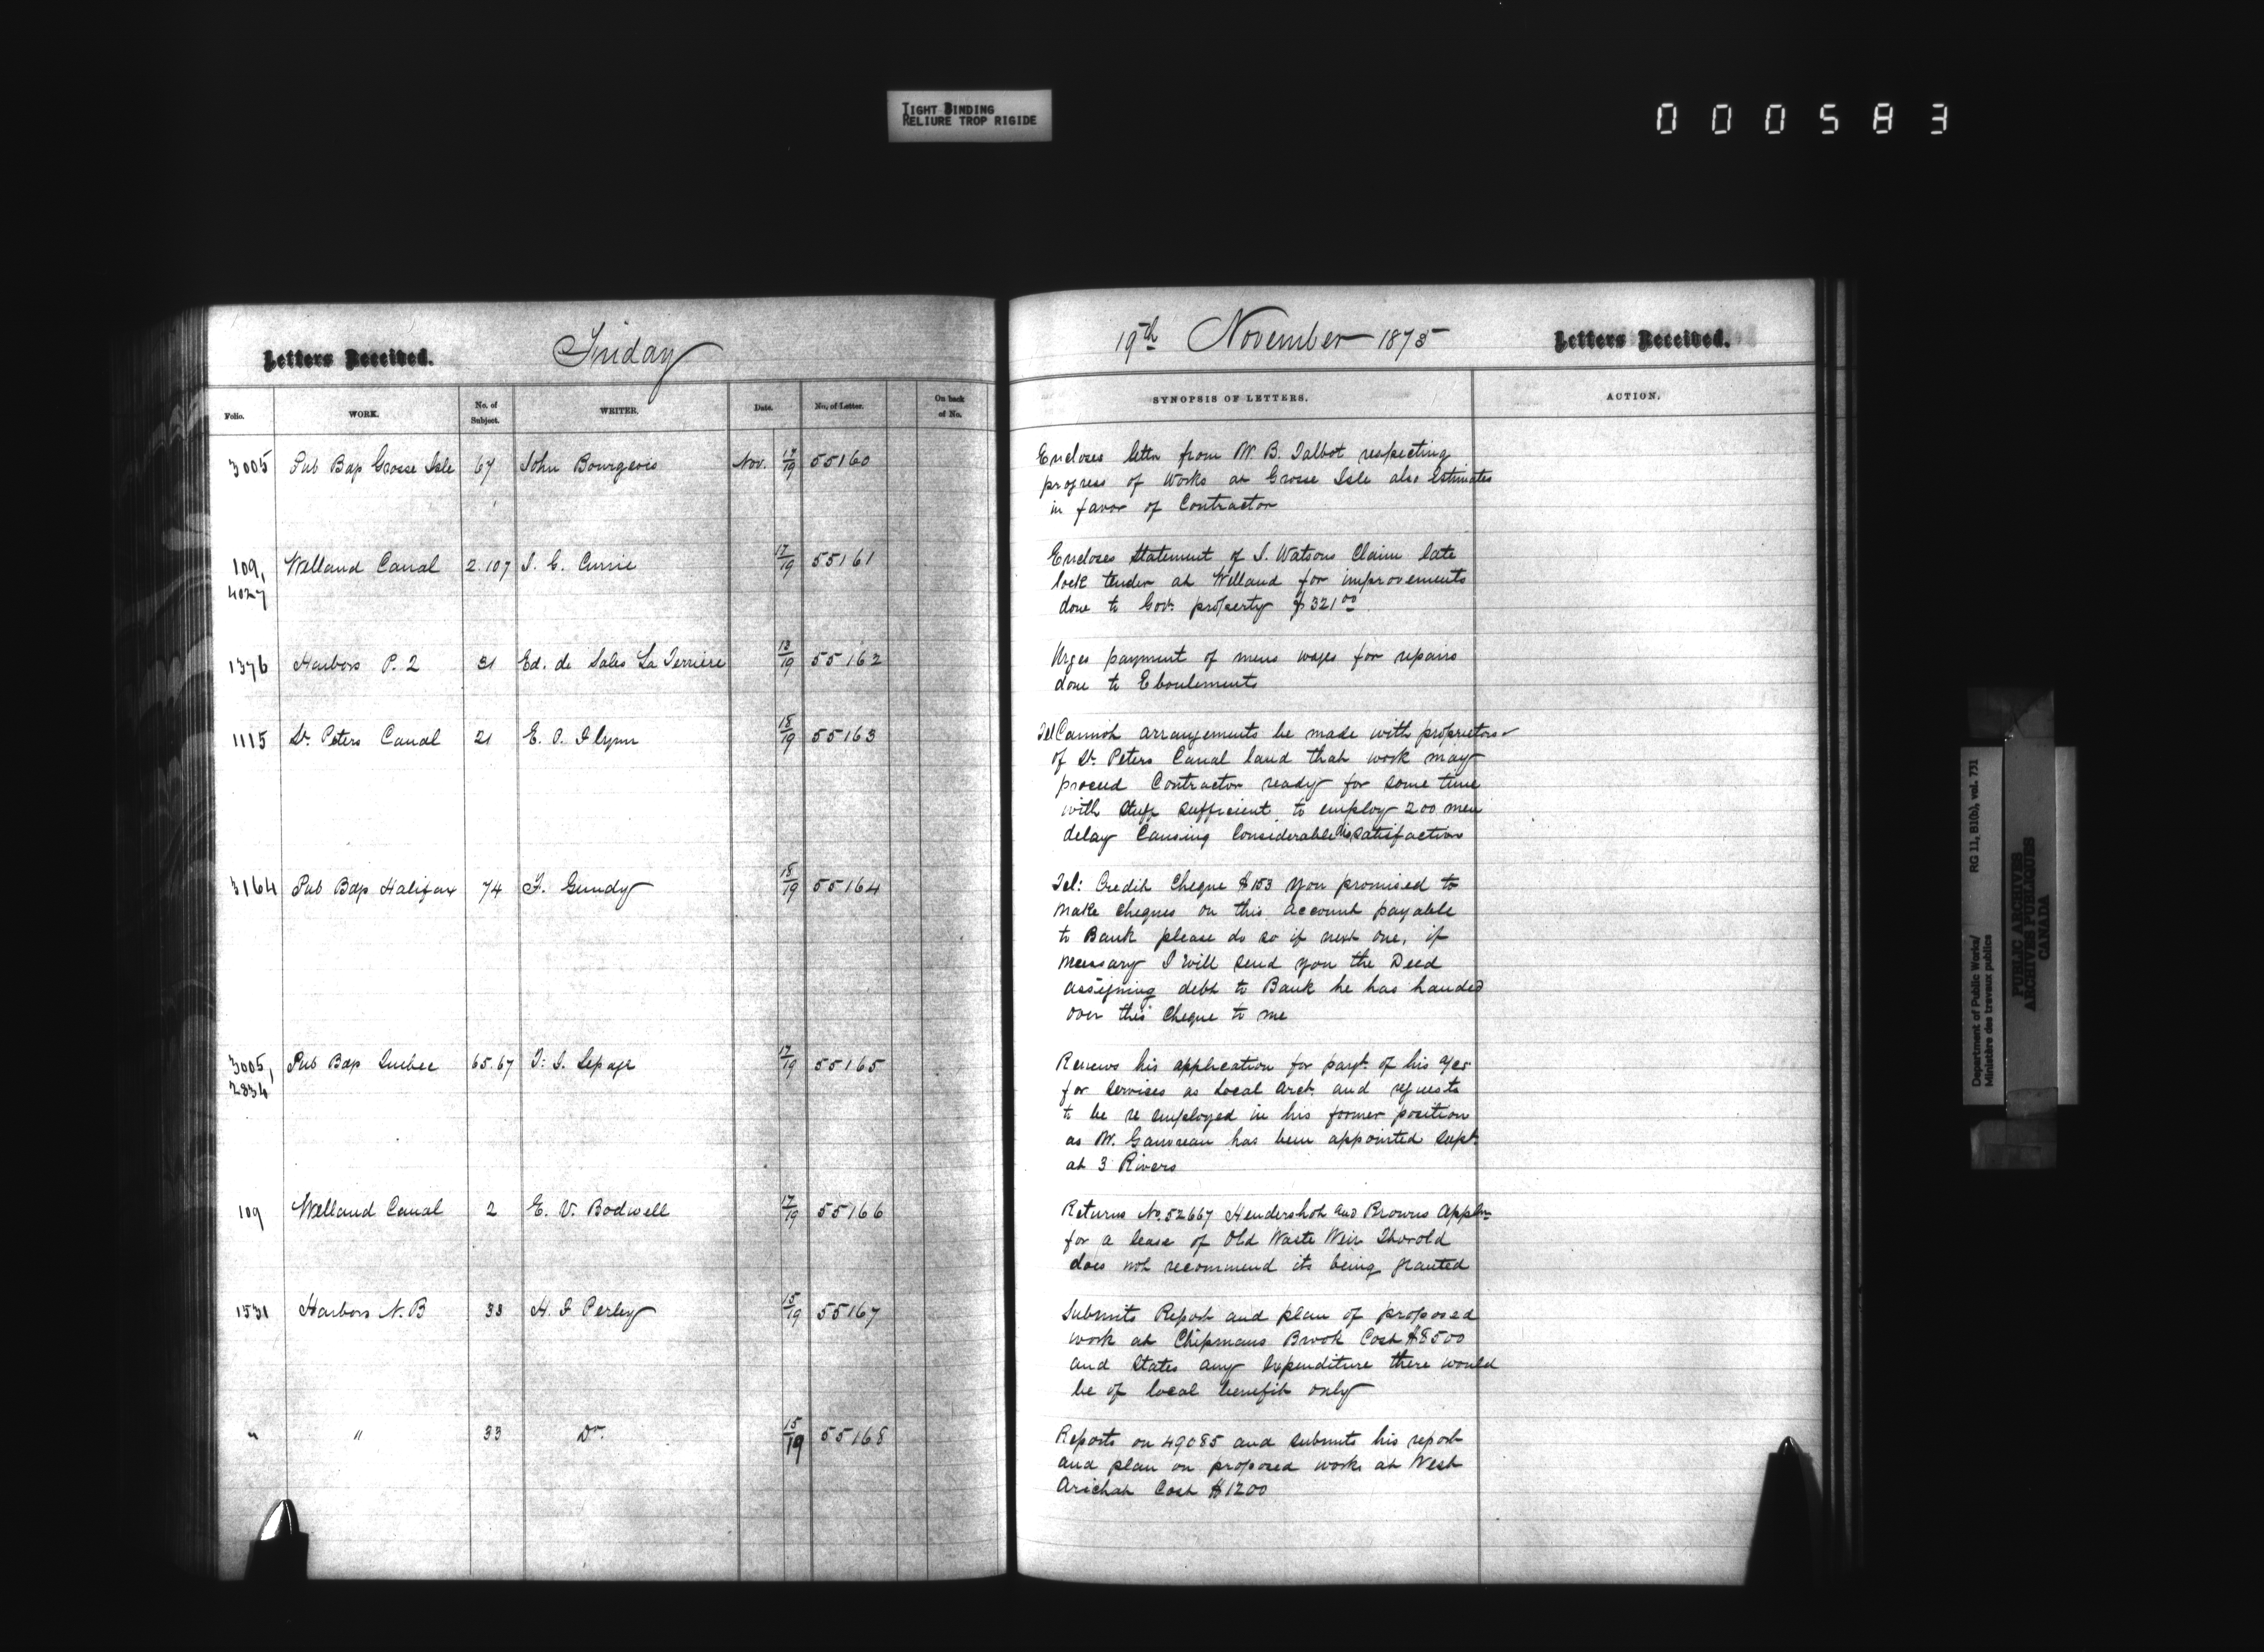 TIGHT BINDING
RELIURE TROP RIGIDE
000583
Letters Received.
Friday
Folio.
WORK.
No. of Subject.
WRITER.
Date.
No. of Letter.
On back of No.
3005 Pub Bdgs Grosse Isle 67 John Bourgeois Nov. 17/19 55160
109, Welland Canal 2.107 J. G. Currie 17/19 55161
4027
1376 Harbors P. 2 31 Ed. de Sales La Terriere 13/19 55162
1115 St. Peters Canal 21 E. P. Flynn 18/19 55163
3164 Pub Bdgs Halifax 74 F. Gundy 18/19 55164
3005, Pub Bdgs Quebec 65.67 T. S. Lepage 17/19 55165
2834
109 Welland Canal 2 E. V. Bodwell 17/19 55166
1531 Harbors N.B 33 H. F Perley 15/19 55167
" " 33 Do. 15/19 55168
19th November 1875
Letters Received.
SYNOPSIS OF LETTERS.
ACTION.
Encloses letter from W. B. Talbot respecting
progress of Works at Grosse Isle also Estimates
in favor of Contractor
Encloses Statement of J. Watsons Claim late
lock tender at Welland for improvements
done to Govt. property $321.00
Urges payment of mens wages for repairs
done to Eboulements
Tel Cannot arrangements be made with proprietors
of St. Peters Canal land that work may
proceed Contractor ready for some time
with stuff sufficient to employ 200 men
delay Causing Considerable dissatisfaction
Tel: Credit Cheque $153 You promised to
make cheques on this account payable
to Bank please do so if next one, if
necessary I will send you the Deed
assigning debt to Bank he has handed
over this Cheque to me
Renews his application for payt. of his a/cs
for Services as Local Arct. and requests
to be re employed in his former position
as Mr. Gauvreau has been appointed Supt.
at 3 Rivers
Returns No. 52667 Hendershot and Browns Appln
for a lease of Old Waste Weir Thorold
does not recommend its being granted
Submits Report and plan of proposed
work at Chipmans Brook Cost $8500
and States any Expenditure there would
be of local benefit only
Reports on 49085 and submits his report
and plan on proposed work at West
Arichat Cost $1200
Department of Public Works/ RG 11, B1(b), vol. 731
Ministère des travaux publics
PUBLIC ARCHIVES
ARCHIVES PUBLIQUES
CANADA